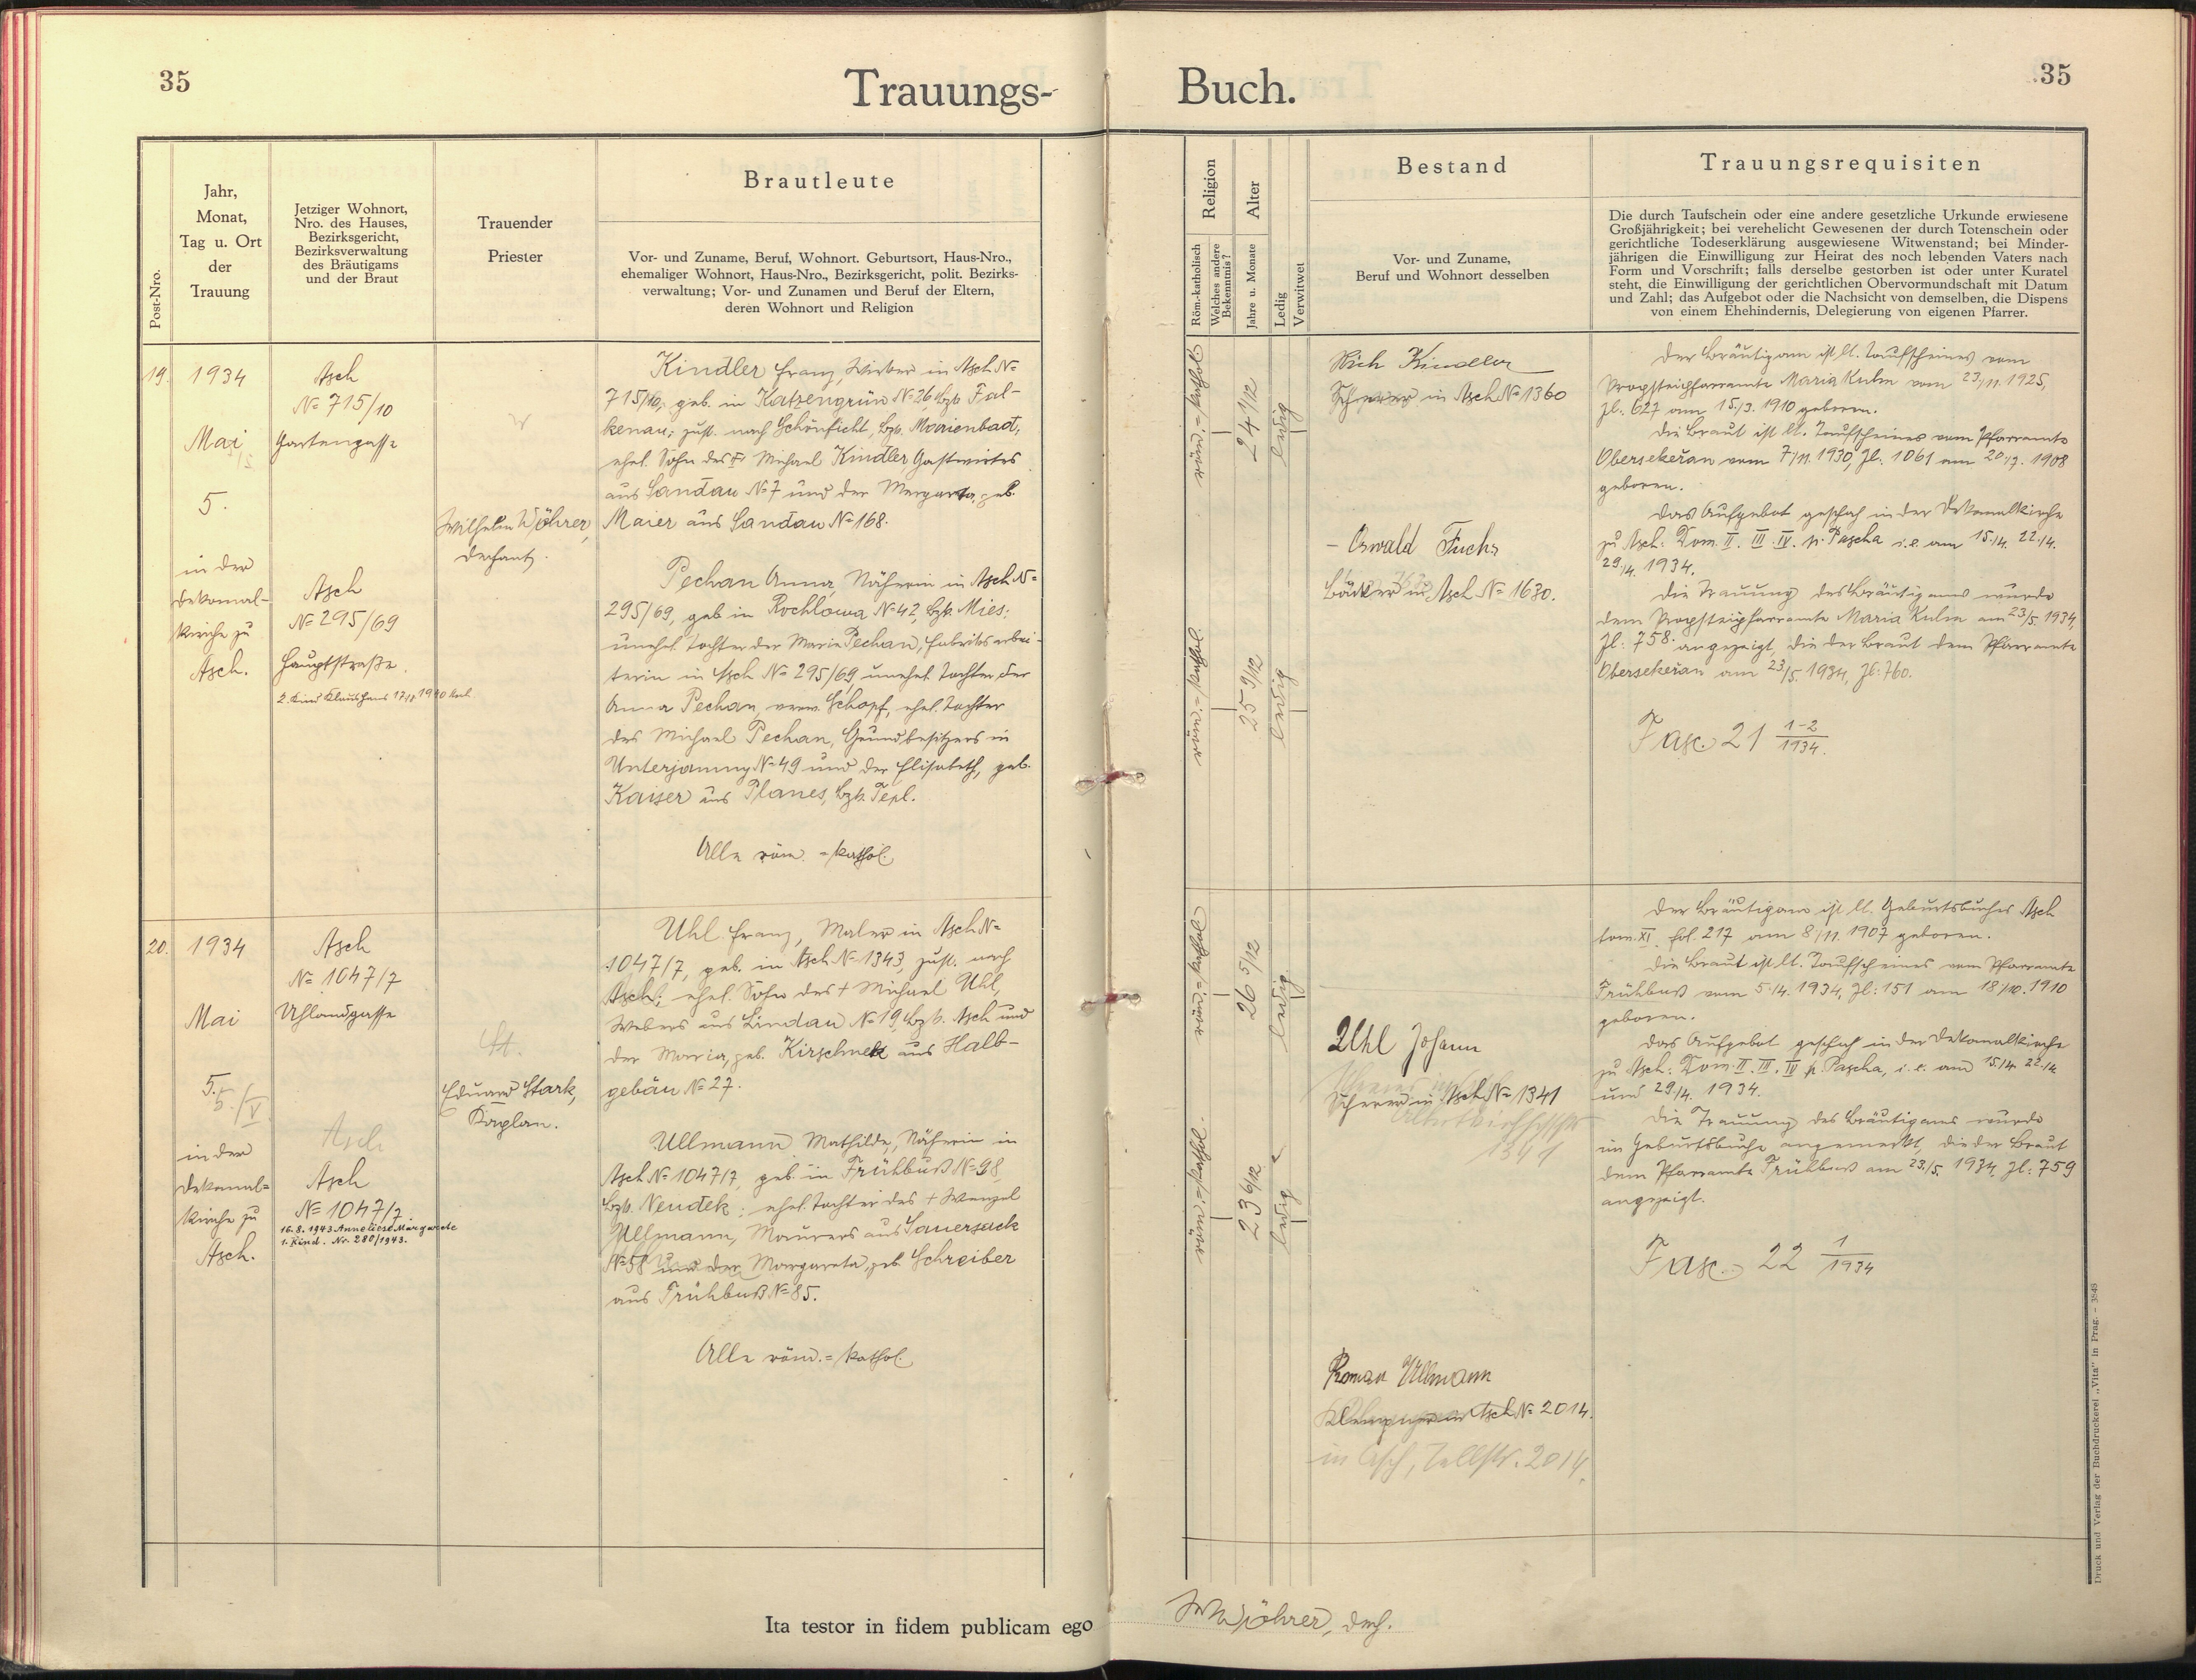 35
Trauungs-
Buch.
35
Post-Nro.
Jahr,
Monat,
Tag u. Ort
der
Trauung
Jetziger Wohnort,
Nro. des Hauses,
Bezirksgericht,
Bezirksverwaltung
des Bräutigams
und der Braut
Trauender
Priester
Brautleute
Vor- und Zuname, Beruf, Wohnort. Geburtsort, Haus-Nro.,
ehemaliger Wohnort, Haus-Nro., Bezirksgericht, polit. Bezirks-
verwaltung; Vor- und Zunamen und Beruf der Eltern,
deren Wohnort und Religion
Religion
Röm.-katholisch
Welches andere
Bekenntnis?
Alter
Jahre u. Monate
Ledig
Verwitwet
Bestand
Vor- und Zuname,
Beruf und Wohnort desselben
Trauungsrequisiten
Die durch Taufschein oder eine andere gesetzliche Urkunde erwiesene
Großjährigkeit; bei verehelicht Gewesenen der durch Totenschein oder
gerichtliche Todeserklärung ausgewiesene Witwenstand; bei Minder-
jährigen die Einwilligung zur Heirat des noch lebenden Vaters nach
Form und Vorschrift; falls derselbe gestorben ist oder unter Kuratel
steht, die Einwilligung der gerichtlichen Obervormundschaft mit Datum
und Zahl; das Aufgebot oder die Nachsicht von demselben, die Dispens
von einem Ehehindernis, Delegierung von eigenen Pfarrer.
19.
1934
Mai
5.
in der
Dekanal-
kirche zu
Asch.
Asch
N= 715/10
Gartengasse
Asch
N= 295/69
Hauptstraße.
2. Kind Klaus Hans
Wilhelm Wöhrer,
Dechant.
Kindler Franz, Wirker in Asch N=
715/10, geb. in Katzengrün N= 26, Bzb. Fal-
kenau; zust. nach Schönficht, Bzb. Marienbad;
ehel. Sohn des + Michael Kindler Gastwirtes
aus Sandau N= 7 und der Margareta, geb.
Maier aus Sandau N= 168.
Pechan Anna, Näherin in Asch N=
295/69, geb in Rochlowa N= 42, Bzb. Mies;
unehel. Tochter der Maria Pechan, Fabriksarbei-
terin in Asch N= 295/69 unehel. Tochter der
Anna Pechan, verw. Schopf, ehel. Tochter
des Michael Pechan, Grundbesitzers in
Unterjamny N= 49 und der Elisabeth, geb.
Kaiser aus Planes, Bzb. Tepl.
Alle röm.=kathol.
röm.=kathol.
24 1/12
ledig
röm.=kathol.
25 9/12
ledig
Rich Kindler
in Asch N= 1360
- Oswald Fuchs
Bäcker in Asch N= 1630.
Der Bräutigam ist lt. Taufscheines vom
Propsteipfarramte Maria Kulm vom 23/11. 1925,
Zl. 627 am 15./3. 1910 geboren.
Die Braut ist lt. Taufscheines vom Pfarramte
Obersekeřan vom 7/11. 1930, Zl. 1061 am 20./7. 1908
geboren.
Das Aufgebot geschah in der Dekanalkirche
zu Asch: Dom. II. III. IV. p. Pascha i. e. am 15./4. 22./4.
29./4. 1934.
Die Trauung des Bräutigams wurde
dem Propsteipfarramte Maria Kulm am 23/5. 1934,
Zl: 758. angezeigt, die der Braut dem Pfarramte
Obersekeřan am 23/5. 1934, Zl: 760.
Fasc. 21 1-2/1934.
20.
1934
Mai
5.
5./V
in der
Dekanal=
kirche zu
Asch.
Asch
N= 1047/7
Uhlandgasse
Asch
Asch
N= 1047/7.
16.8.1943 Anneliese Margarete
1. Kind. Nr. 280/1943.
St.
Eduard Stark,
Kaplan.
Uhl Franz, Maler in Asch N=
1047/7, geb. in Asch N= 1343, zust. nach
Asch; ehel. Sohn des + Michael Uhl,
Webers aus Lindau N= 19, Bzb. Asch und
der Maria, geb. Kirschnek aus Halb-
gebäu N= 27.
Ullmann Mathilde, Näherin in
Asch N= 1047/7, geb. in Frühbuß N= 98,
Bzb. Neudek; ehel. Tochter des + Wenzel
Ullmann, Maurers aus Sauersack
N= 58 und der Margareta, geb. Schreiber
aus Frühbuß N= 85.
Alle röm.=kathol.
röm.=kathol.
26 5/12
ledig
röm.=kathol.
23 6/12
ledig
Uhl Johann
Scherer in Asch N= 1341
1341
Roman Ullmann
Klempner in Asch N= 2014.
in Asch, Tellstr. 2014.
Der Bräutigam ist lt. Geburtsbuches Asch
tom. XI. fol. 217 am 8/11. 1907 geboren.
Die Braut ist lt. Taufscheines vom Pfarramte
Frühbuß vom 5./4. 1934, Zl: 151 am 18/10. 1910
geboren.
Das Aufgebot geschah in der Dekanalkirche
zu Asch: Dom. II. III. IV p. Pascha, i. e. am 15./4. 22./4.
und 29/4. 1934.
Die Trauung des Bräutigams wurde
im Geburtsbuche angemerkt, die der Braut
dem Pfarramte Frühbuß am 23./5. 1934, Zl: 759
angezeigt.
Fasc. 22 1/1934
Ita testor in fidem publicam ego
W Wöhrer, Dech.
Druck und Verlag der Buchdruckerei „Vita" in Prag. – 3848